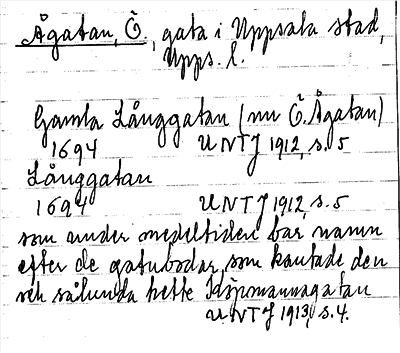 Ågatan, Ö., gata i Uppsala stad,
Upps. l.
Gamla Långgatan (nu Ö. Ågatan)
1694 UNTJ 1912, s. 5
Långgatan
1694 UNTJ 1912, s. 5
som under medeltiden bar namn
efter de gatubodar, som kantade den
och sålunda hette Köpmannagatan
UNTJ 1913, s. 4.